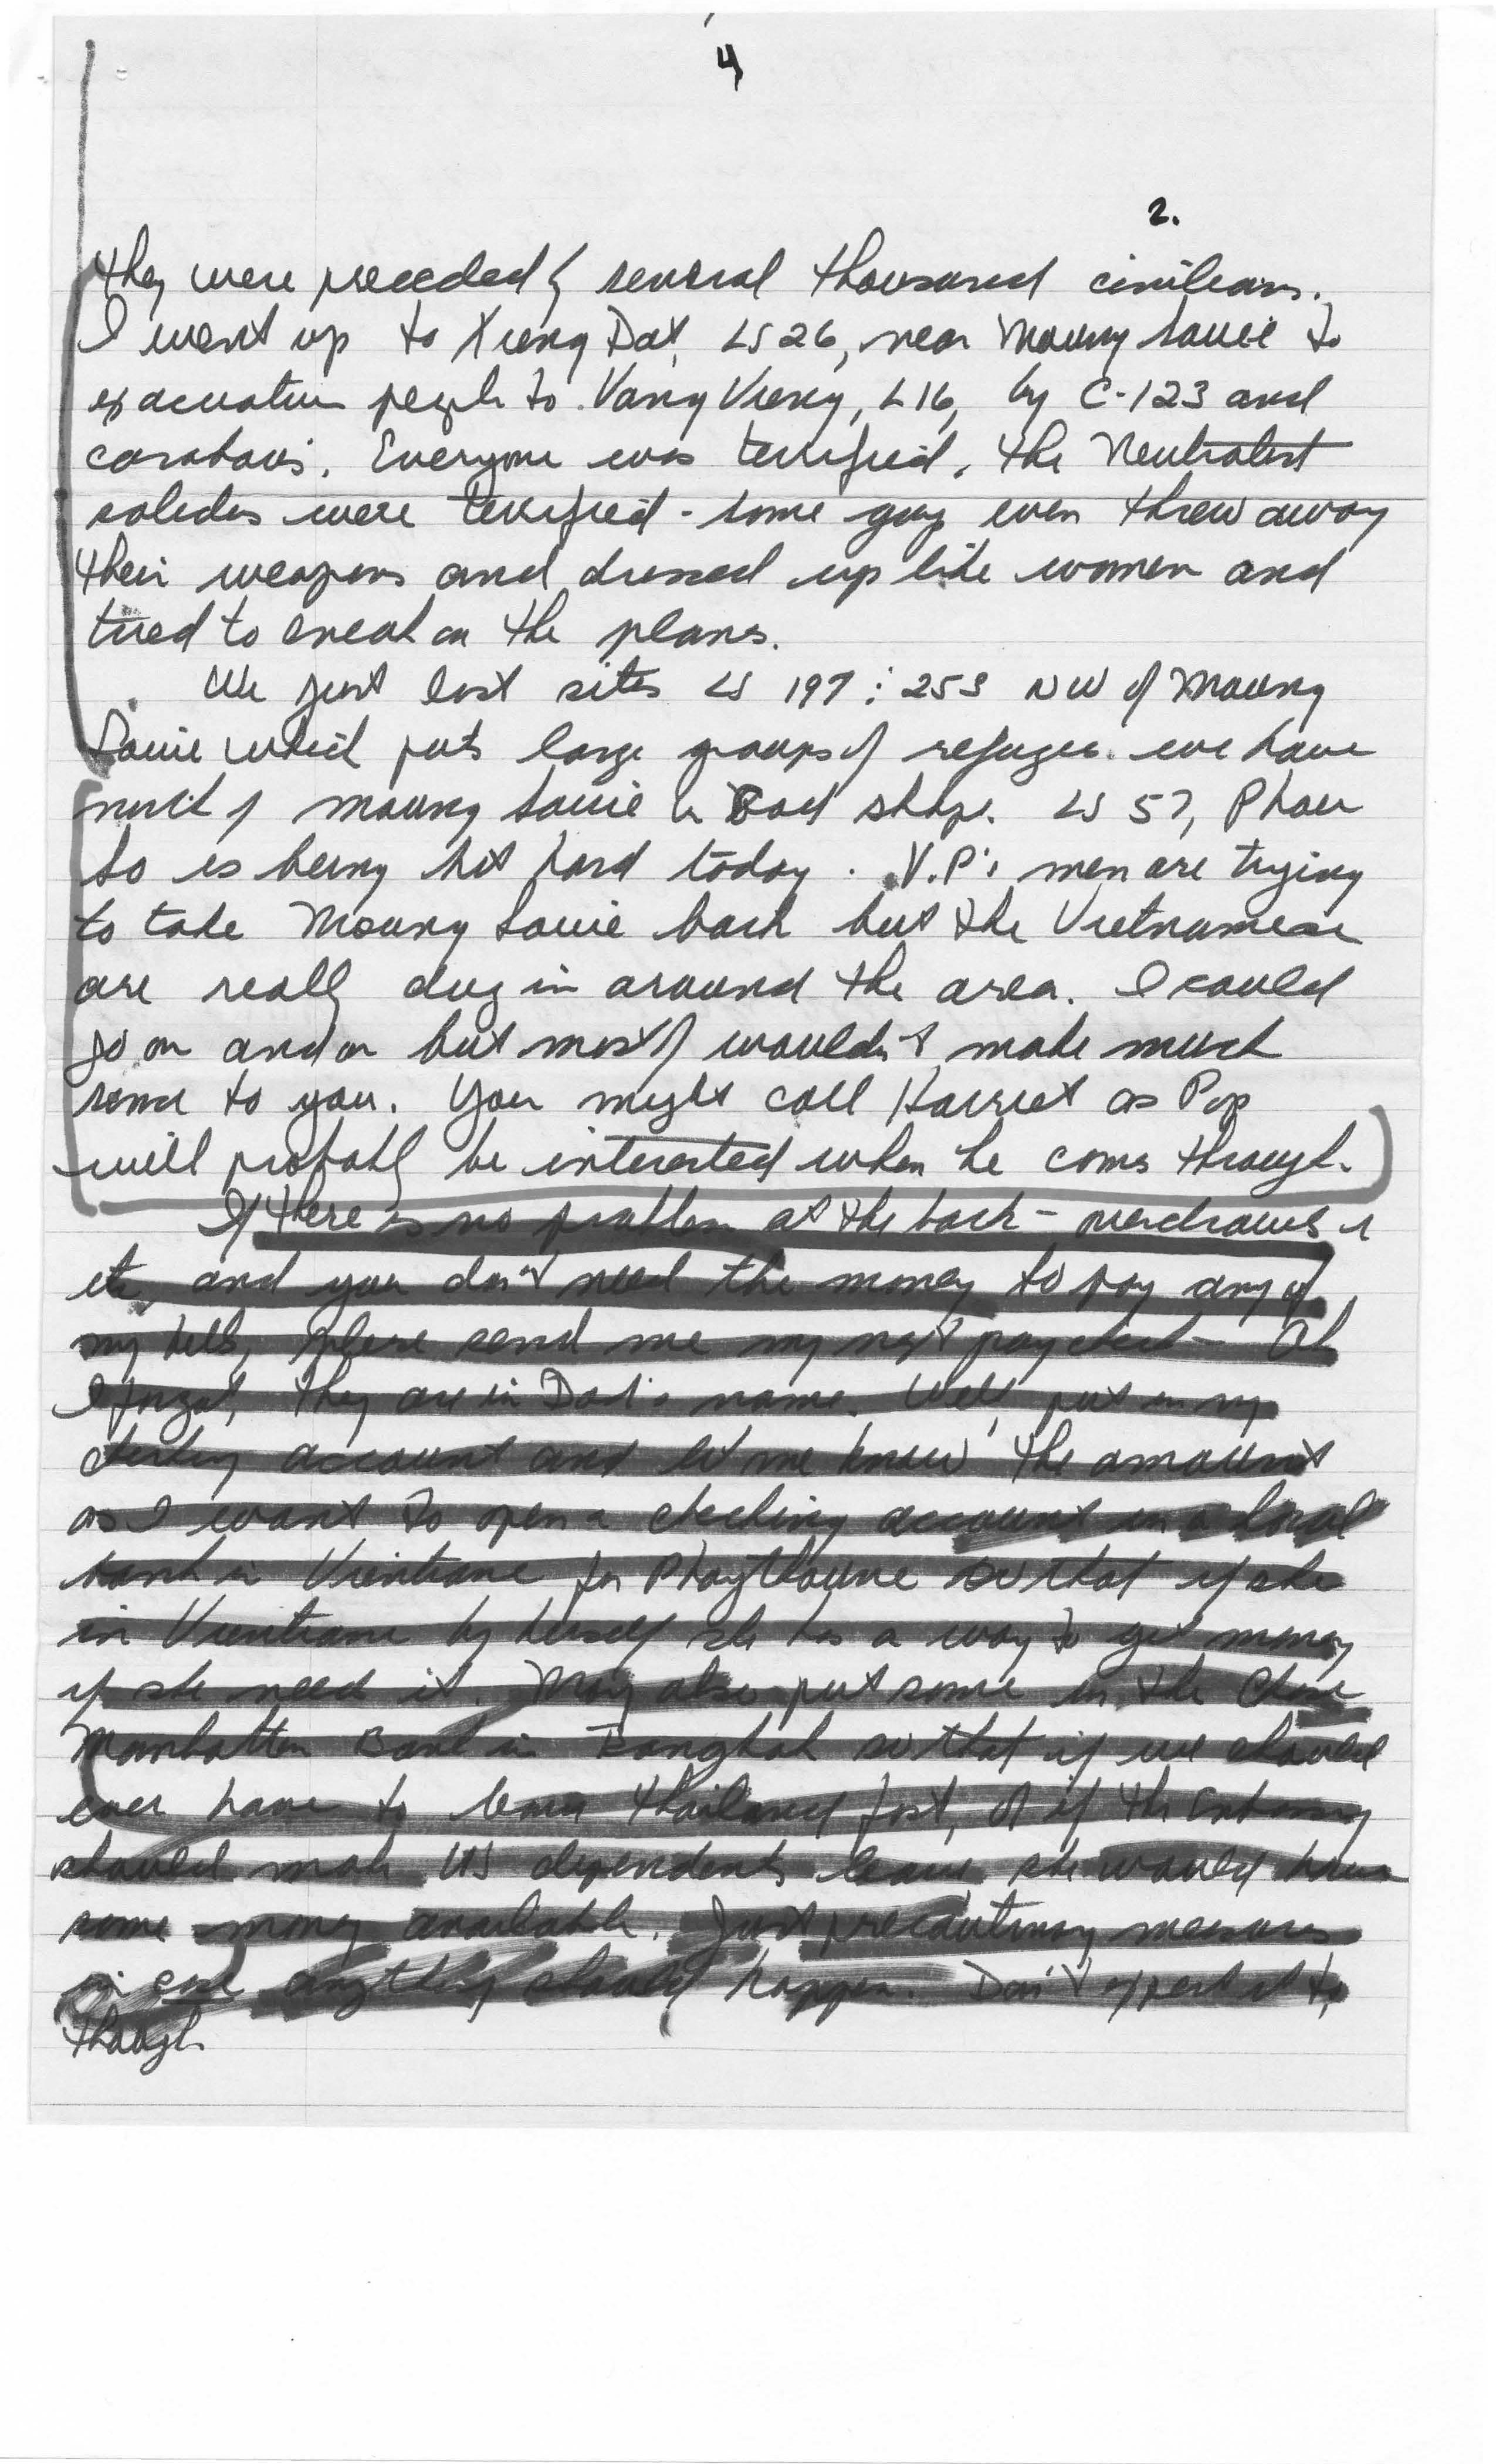 4
2.
they were preceeded by several thousand civilians.
I went up to Xieng Dat, LS 26, near Moung Souie to
people to Vang Vieng, L16, by C-123 and
caribous. Everyone was terrified, the Neutralist
were terrified - some guys even threw away
their weapons and dressed up like women and
tried to sneak on the planes.
We just lost sites LS 197 & 253 NW of Moung
Souie which puts large groups of refugees we have
north of Moung Souie in Bad shape. LS 57, Phou
So is being hit hard today. V.P's men are trying
to take Moung Souie back but the Vietnamese
are really dug in around the area. I could
go on and on but most of wouldn't make much
sense to you. You might call Harriet as Pop
will probably be interested when he comes through.
If there is no problem at the bank - overdraws
etc, and you don't need the money to pay any of
my bills, please send me my next paycheck - Oh
I forgot, they are in Dad's name. Well, put in my
checking account and let me know the amount
as I want to open a checking account in a local
bank in Vientiane for Phaythoune so that if she
in Vientiane by herself she has a way to get money
if she need it. May also put some in the Chase
Manhatten Bank in Bangkok so that if we should
ever have to leave Thailand fast, or if the Embassy
should make US dependents leave she would have
some money available. Just precautinary measures
in case anything should happen. Don't expect it to
though.